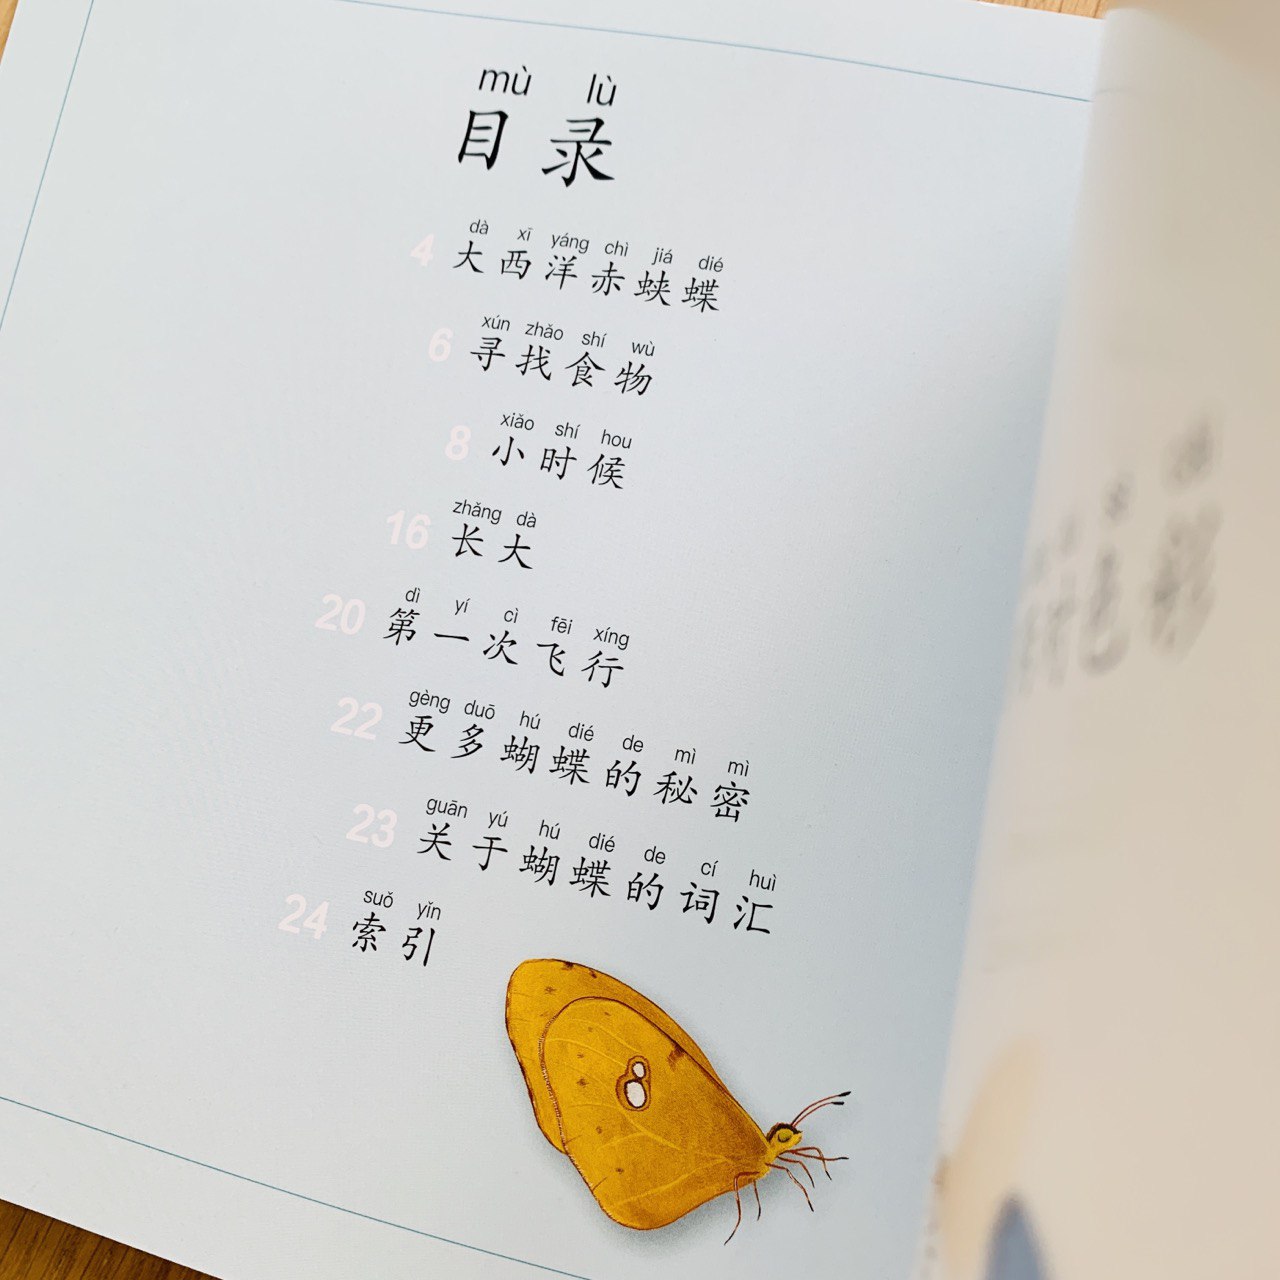 mù lù
目录
dà xī yáng chì jiá dié
4 大西洋赤蛱蝶
xún zhǎo shí wù
6 寻找食物
xiǎo shí hou
8 小时候
zhǎng dà
16 长大
dì yí cì fēi xíng
20 第一次飞行
gèng duō hú dié de mì mì
22 更多蝴蝶的秘密
guān yú hú dié de cí huì
23 关于蝴蝶的词汇
suǒ yǐn
24 索引